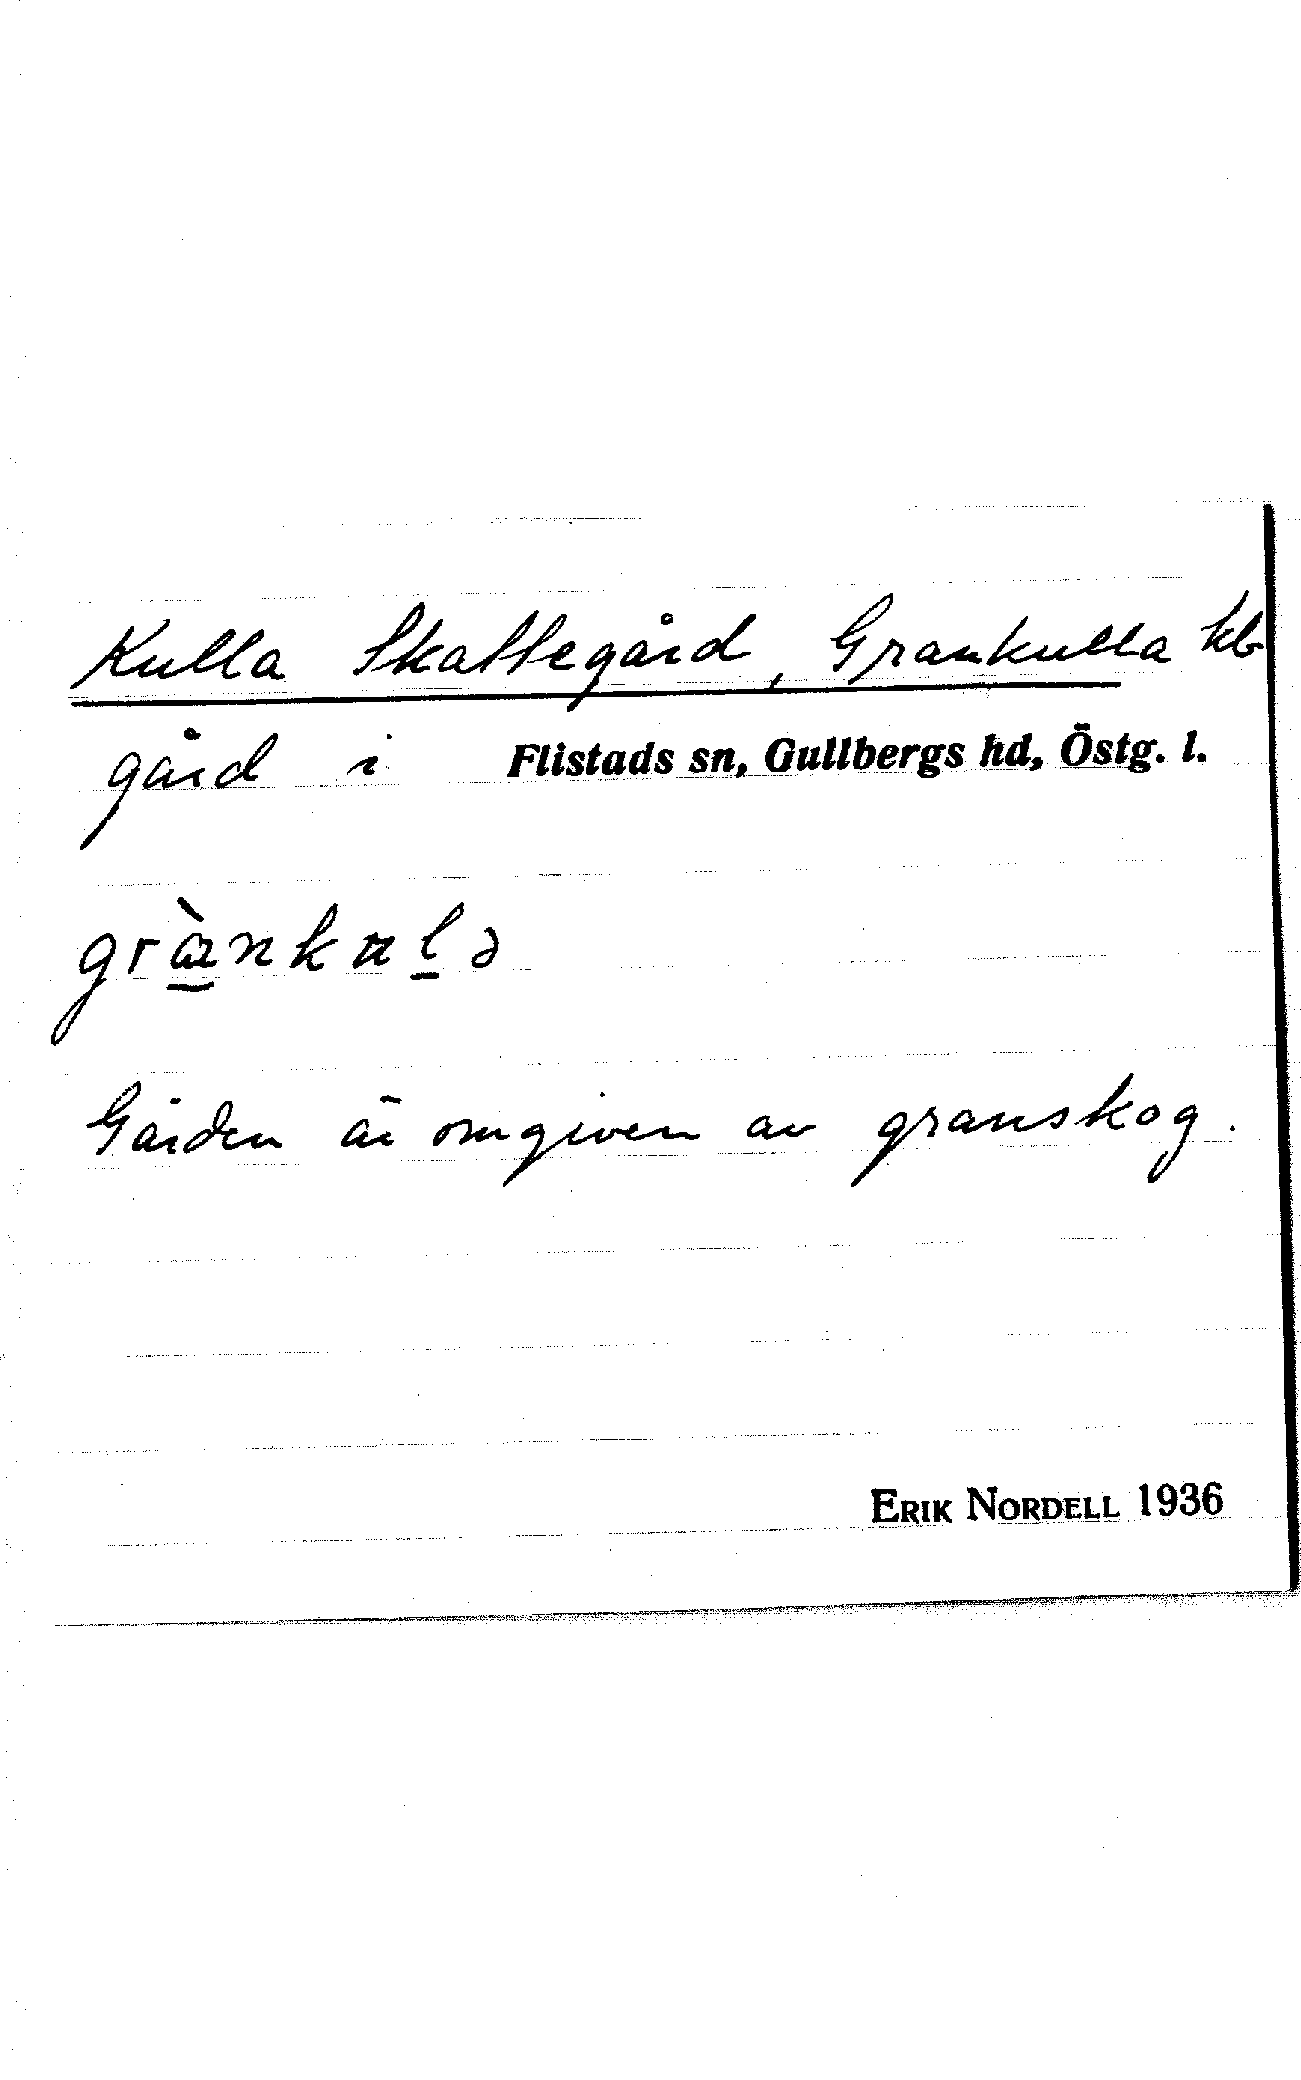 Kulla Skattegård, Grankulla kb
gård i Flistads sn, Gullbergs hd, Östg. l.
Gården är omgiven av granskog.
ERIK NORDELL 1936